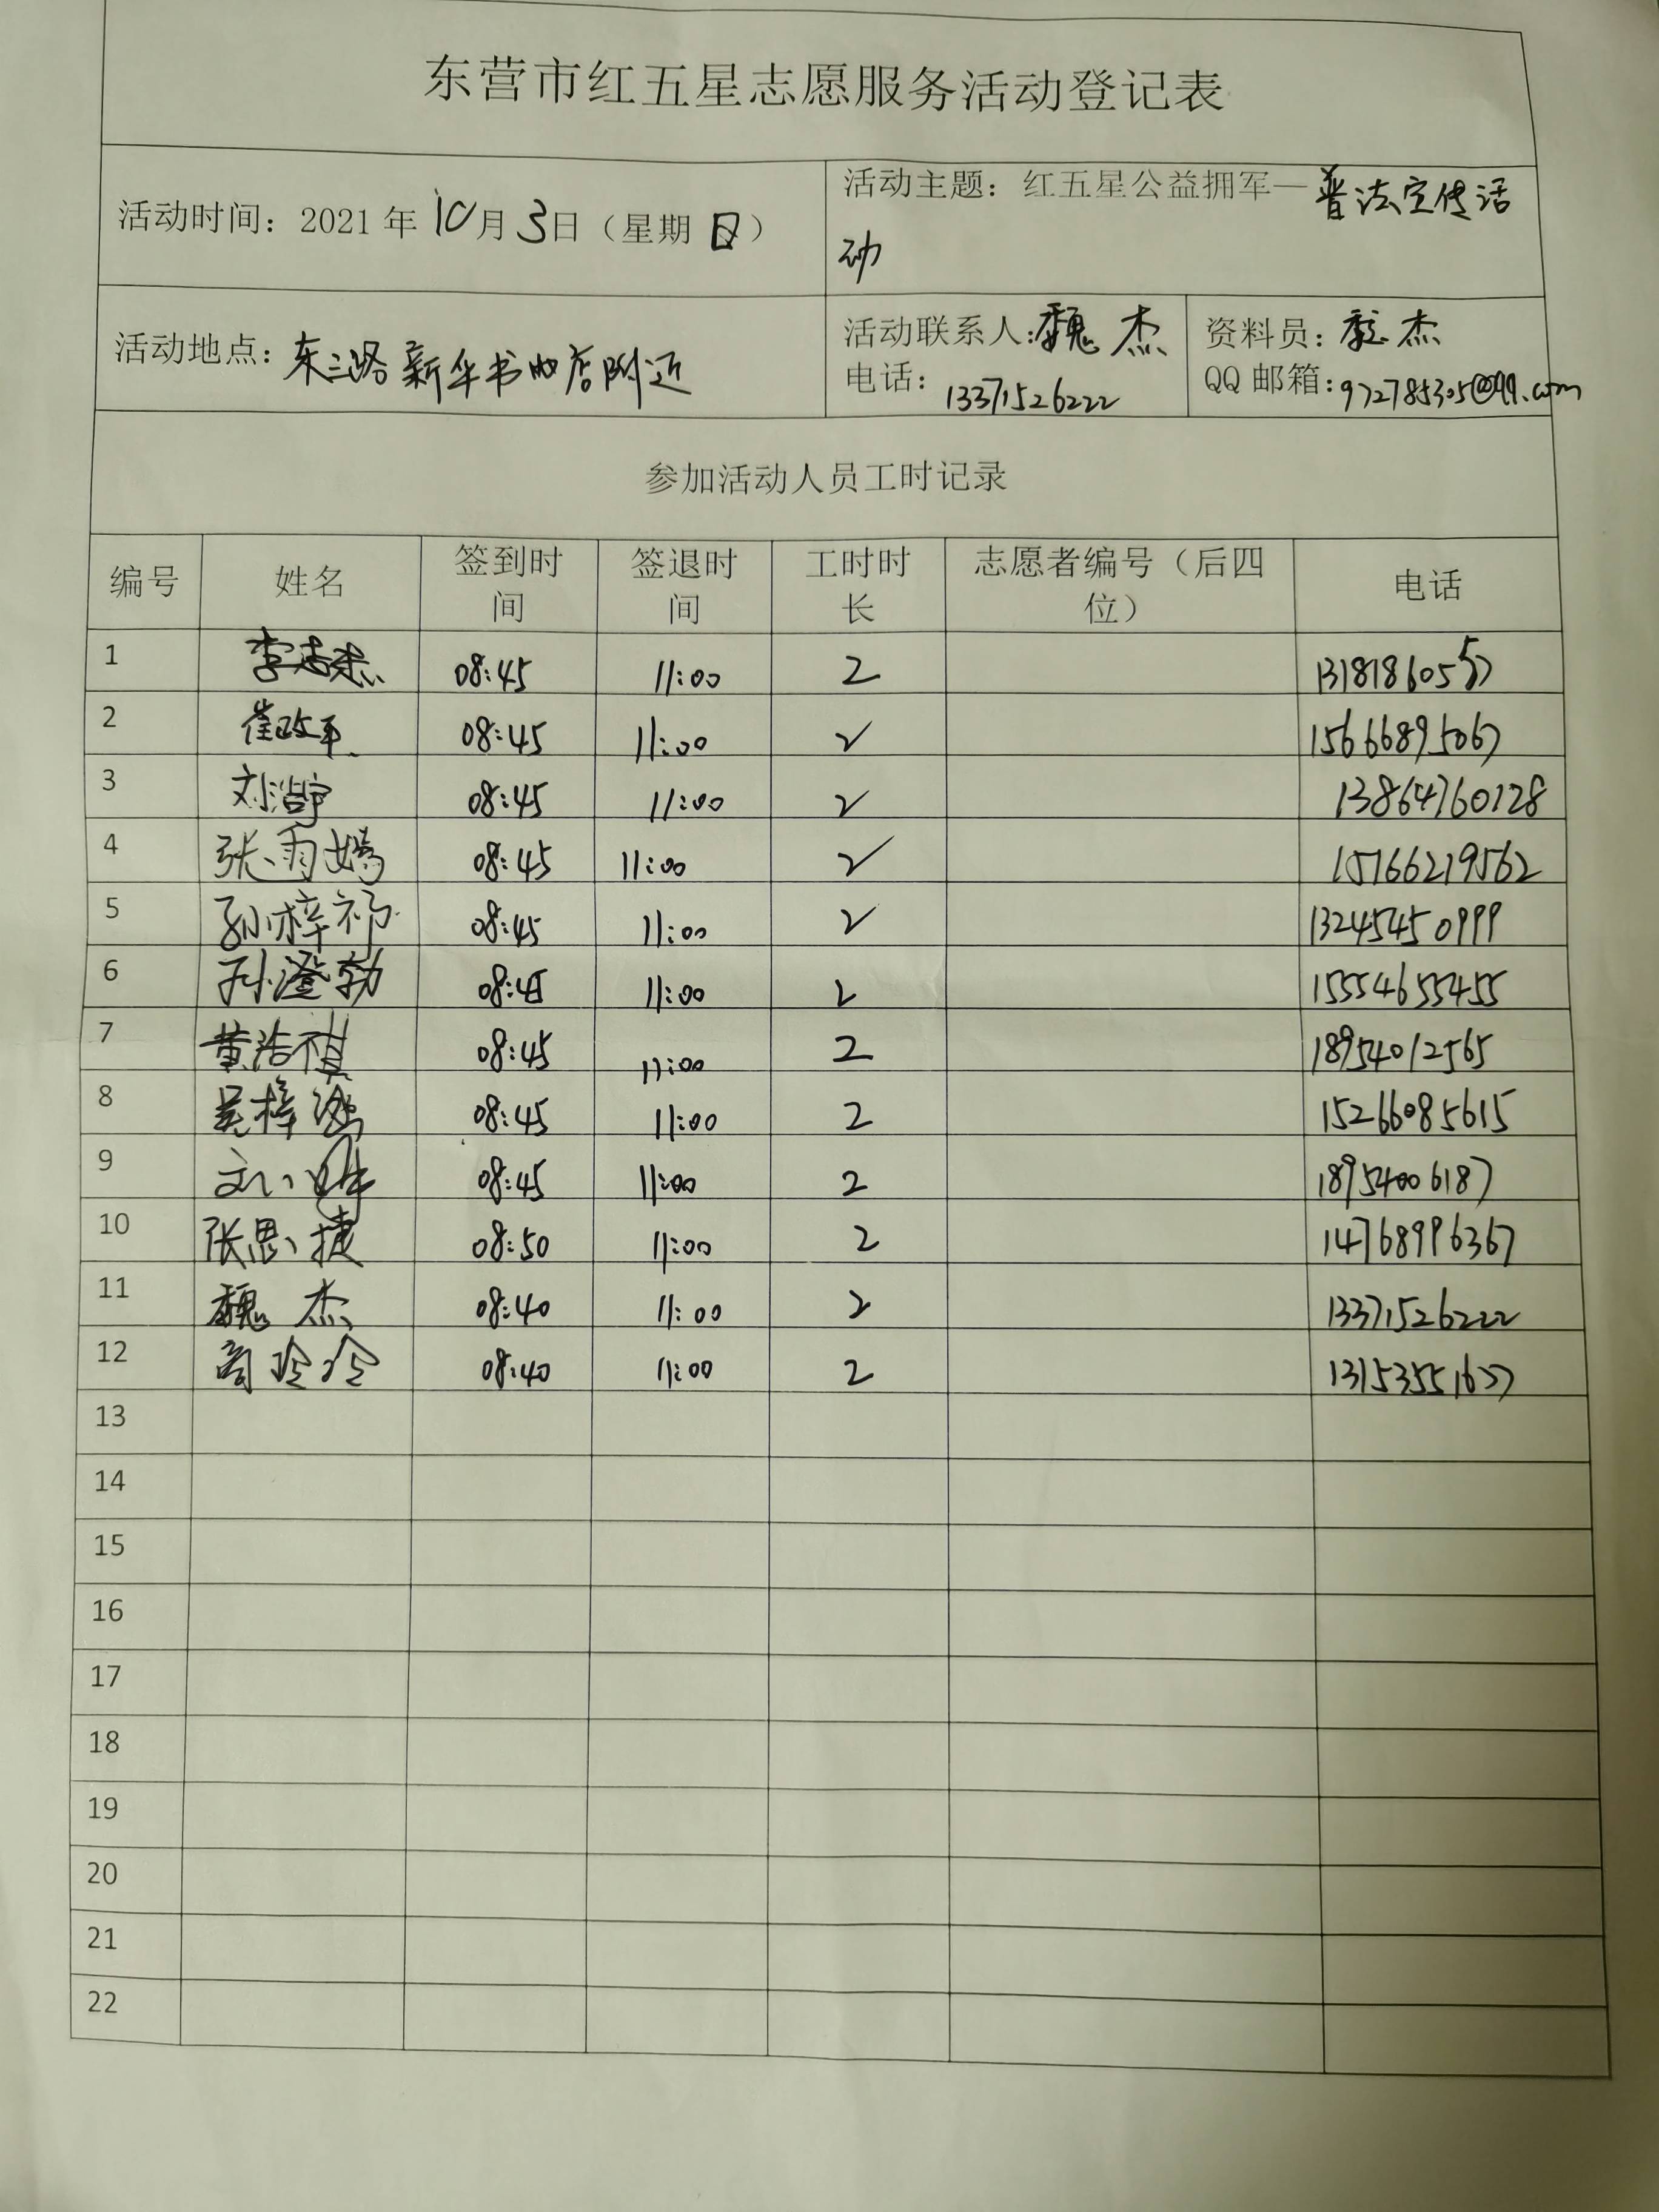 东营市红五星志愿服务活动登记表
活动时间：2021年10月3日（星期日）
活动主题：红五星公益拥军—普法宣传活
动
活动地点：东三路新华书店附近
活动联系人：魏杰
电话：13371526222
资料员：魏杰
QQ邮箱：972785305@qq.com
参加活动人员工时记录
编号 姓名 签到时间 签退时间 工时时长 志愿者编号（后四位） 电话
1 李志杰 08:45 11:00 2
2 崔政平 08:45 11:00 2 15666895067
3 刘浩宇 08:45 11:00 2 13864760128
4 张雨嫣 08:45 11:00 2 15766219562
5 孙梓祁 08:45 11:00 2 13245450999
6 孙澄勃 08:45 11:00 2 15554655455
7 黄浩祺 08:45 11:00 2 18954012565
8 吴梓涵 08:45 11:00 2 15266085615
9 08:45 11:00 2 18954006187
10 张思捷 08:50 11:00 2 14768996367
11 魏杰 08:40 11:00 2 13371526222
12 08:40 11:00 2 13153551677
13
14
15
16
17
18
19
20
21
22